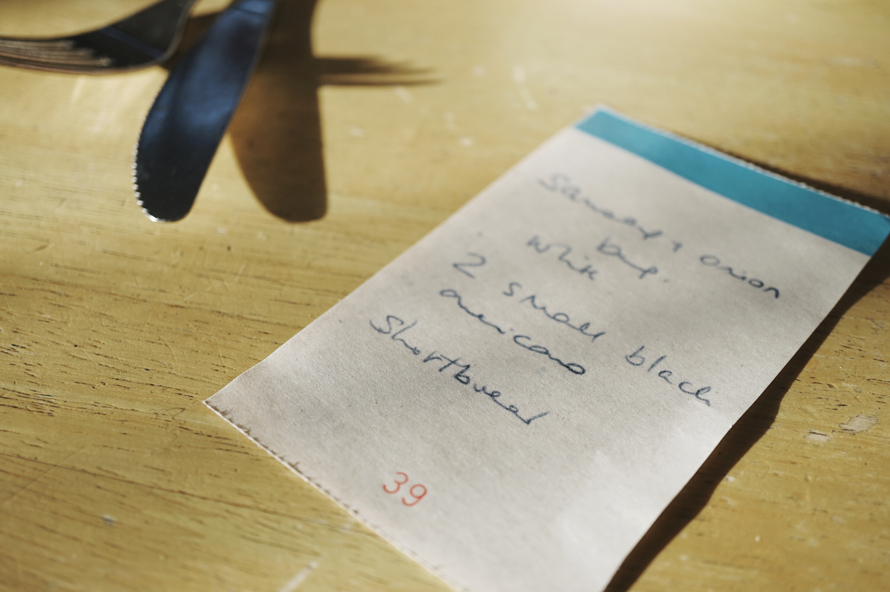 Sausage & onion
bap.
white
2 small black
americano
Shortbread
39